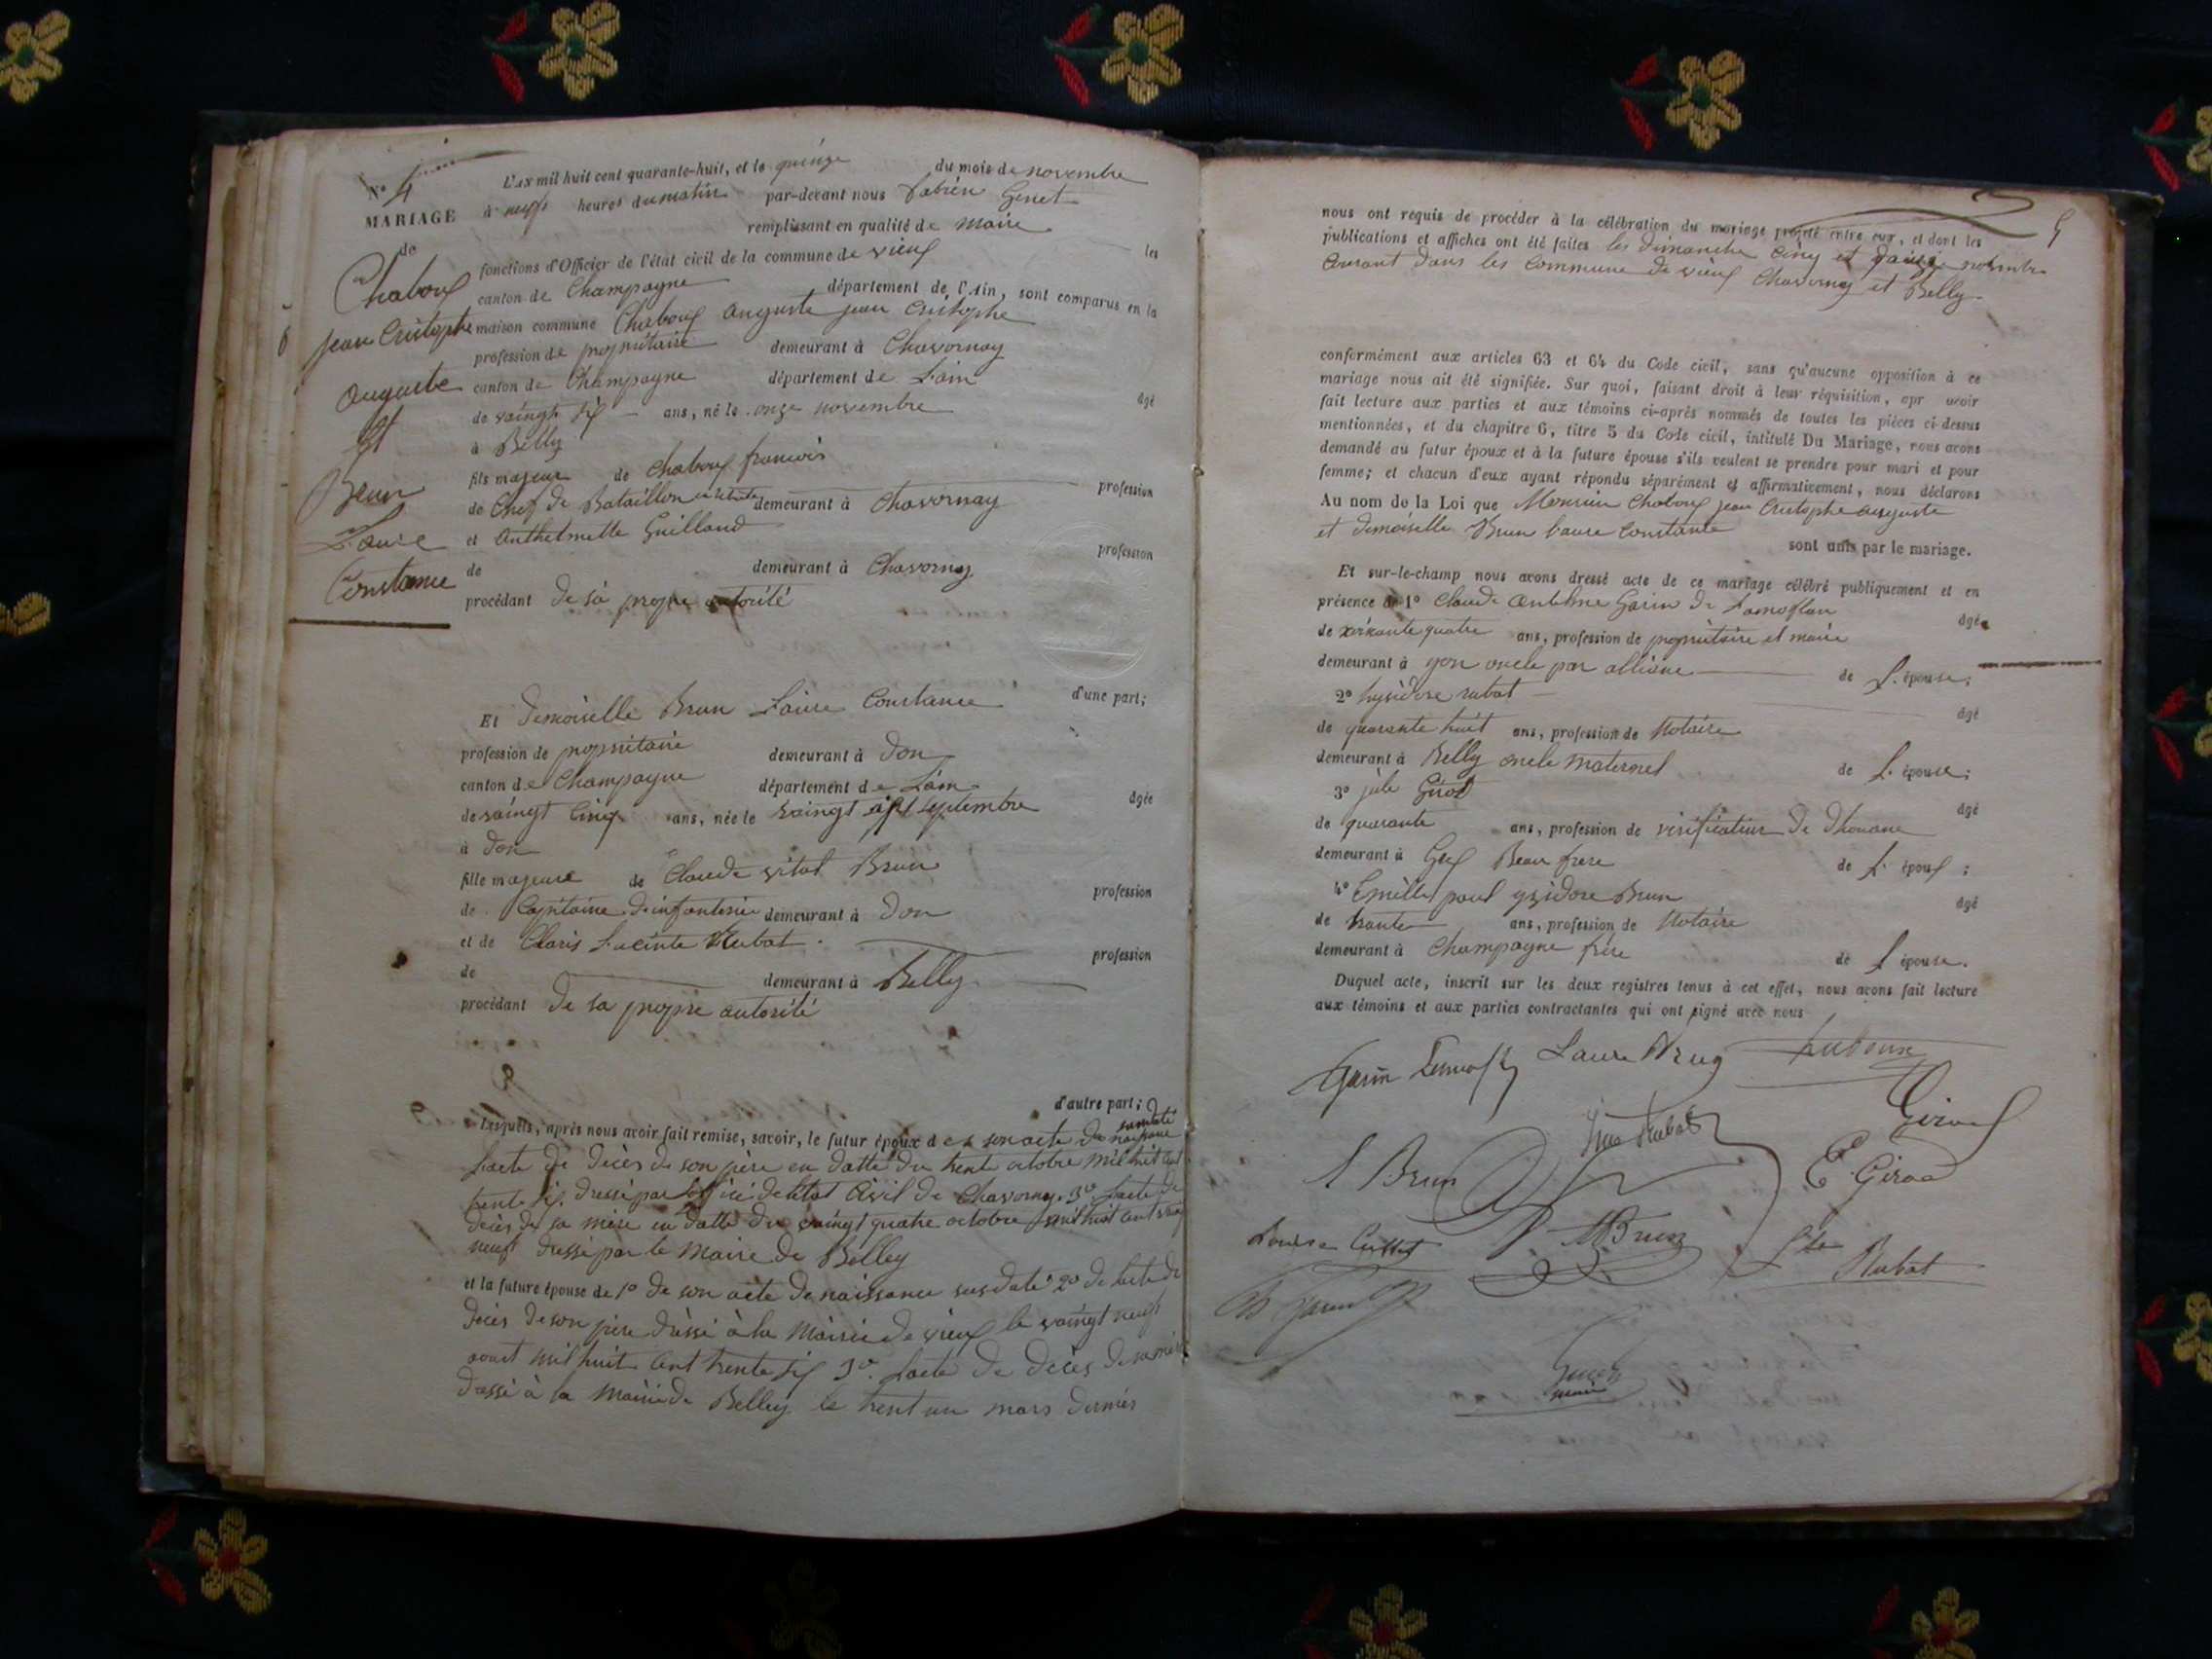 N° 4
MARIAGE
de
Chaboux
Jean Cristophe
Auguste
et
Brun
Laure
Constance
L'AN mil huit cent quarante-huit, et le quinze du mois de novembre
à neuf heures du matin par-devant nous Fabien Genet
remplissant en qualité de Maire les
fonctions d'Officier de l'état civil de la commune de vieux
canton de Champagne département de l'Ain, sont comparus en la
maison commune Chaboux Auguste jean Cristophe
profession de propriétaire demeurant à Chavornay
canton de Champagne département de L'ain âgé
de vaingt six ans, né le onze novembre
à Belly
fils majeur de Chaboux francois profession
de Chef de Bataillon en retraite demeurant à Chavornay
et Anthelmette Guilland profession
de demeurant à Chavornay
procédant de sà propre autorité
d'une part;
Et demoiselle Brun Laure Constance
profession de propriétaire demeurant à Don
canton de Champagne département de Lain âgée
de vaingt cinq ans, née le vaingt sept septembre
à Don
fille majeure de Claude vital Brun profession
de Capitaine d'infanterie demeurant à Don
et de Claris Lucinte Rubat profession
de demeurant à Belly
procédant de sa propre autorité
d'autre part;
Lesquels, après nous avoir fait remise, savoir, le futur époux de son acte de naissance susdaté
Lacte de décès de son père en datte du trente octobre mil huit cent
trente six dressé par Lofficié de létat Civil de Chavornay 3° Lacte de
décès de sa mère en datte du vaingt quatre octobre mil huit cent
neuf dressé par le Maire de Belley
et la future épouse de 1° de son acte de naissance susdaté 2° de lacte de
décès de son père dréssé à la Mairie de vieux le vaingt neuf
aout mil huit cent trente six 3° Lacte de décès de sa mère
dressé à la Mairie de Belley le trent un mars dernier
nous ont requis de procéder à la célébration du mariage projeté entre eux, et dont les
publications et affiches ont été faites les dimanche cinq et douze novembre
Courant dans les Commune de vieux Chavornay et Belly
conformément aux articles 63 et 64 du Code civil, sans qu'aucune opposition à ce
mariage nous ait été signifiée. Sur quoi, faisant droit à leur réquisition, apr avoir
fait lecture aux parties et aux témoins ci-après nommés de toutes les pièces ci-dessus
mentionnées, et du chapitre 6, titre 5 du Code civil, intitulé Du Mariage, nous avons
demandé au futur époux et à la future épouse s'ils veulent se prendre pour mari et pour
femme; et chacun d'eux ayant répondu séparément et affirmativement, nous déclarons
Au nom de la Loi que Monsieur Chaboux jean Cristophe auguste
et demoiselle Brun laure Constance
sont unis par le mariage.
Et sur-le-champ nous avons dressé acte de ce mariage célébré publiquement et en
présence de 1° Claude Anthelme Garin de Lamorflan âgé
de soixante quatre ans, profession de propriétaire et maire
demeurant à yon oncle par alliance de L'épouse;
2° hysidore rubat âgé
de quarante huit ans, profession de Notaire
demeurant à Belly oncle maternel de L'épouse;
3° jule Girod âgé
de quarante ans, profession de vérificateur de Dhouane
demeurant à Gex Beau frere de L'époux;
4° Emille paul ysidore Brun âgé
de trante ans, profession de Notaire
demeurant à Champagne frére de L'épouse.
Duquel acte, inscrit sur les deux registres tenus à cet effet, nous avons fait lecture
aux témoins et aux parties contractantes qui ont signé avec nous
Laure Brun
Girod
E Brun
E Girod
Louise Cullet
Brun
Rubat
Genet
maire